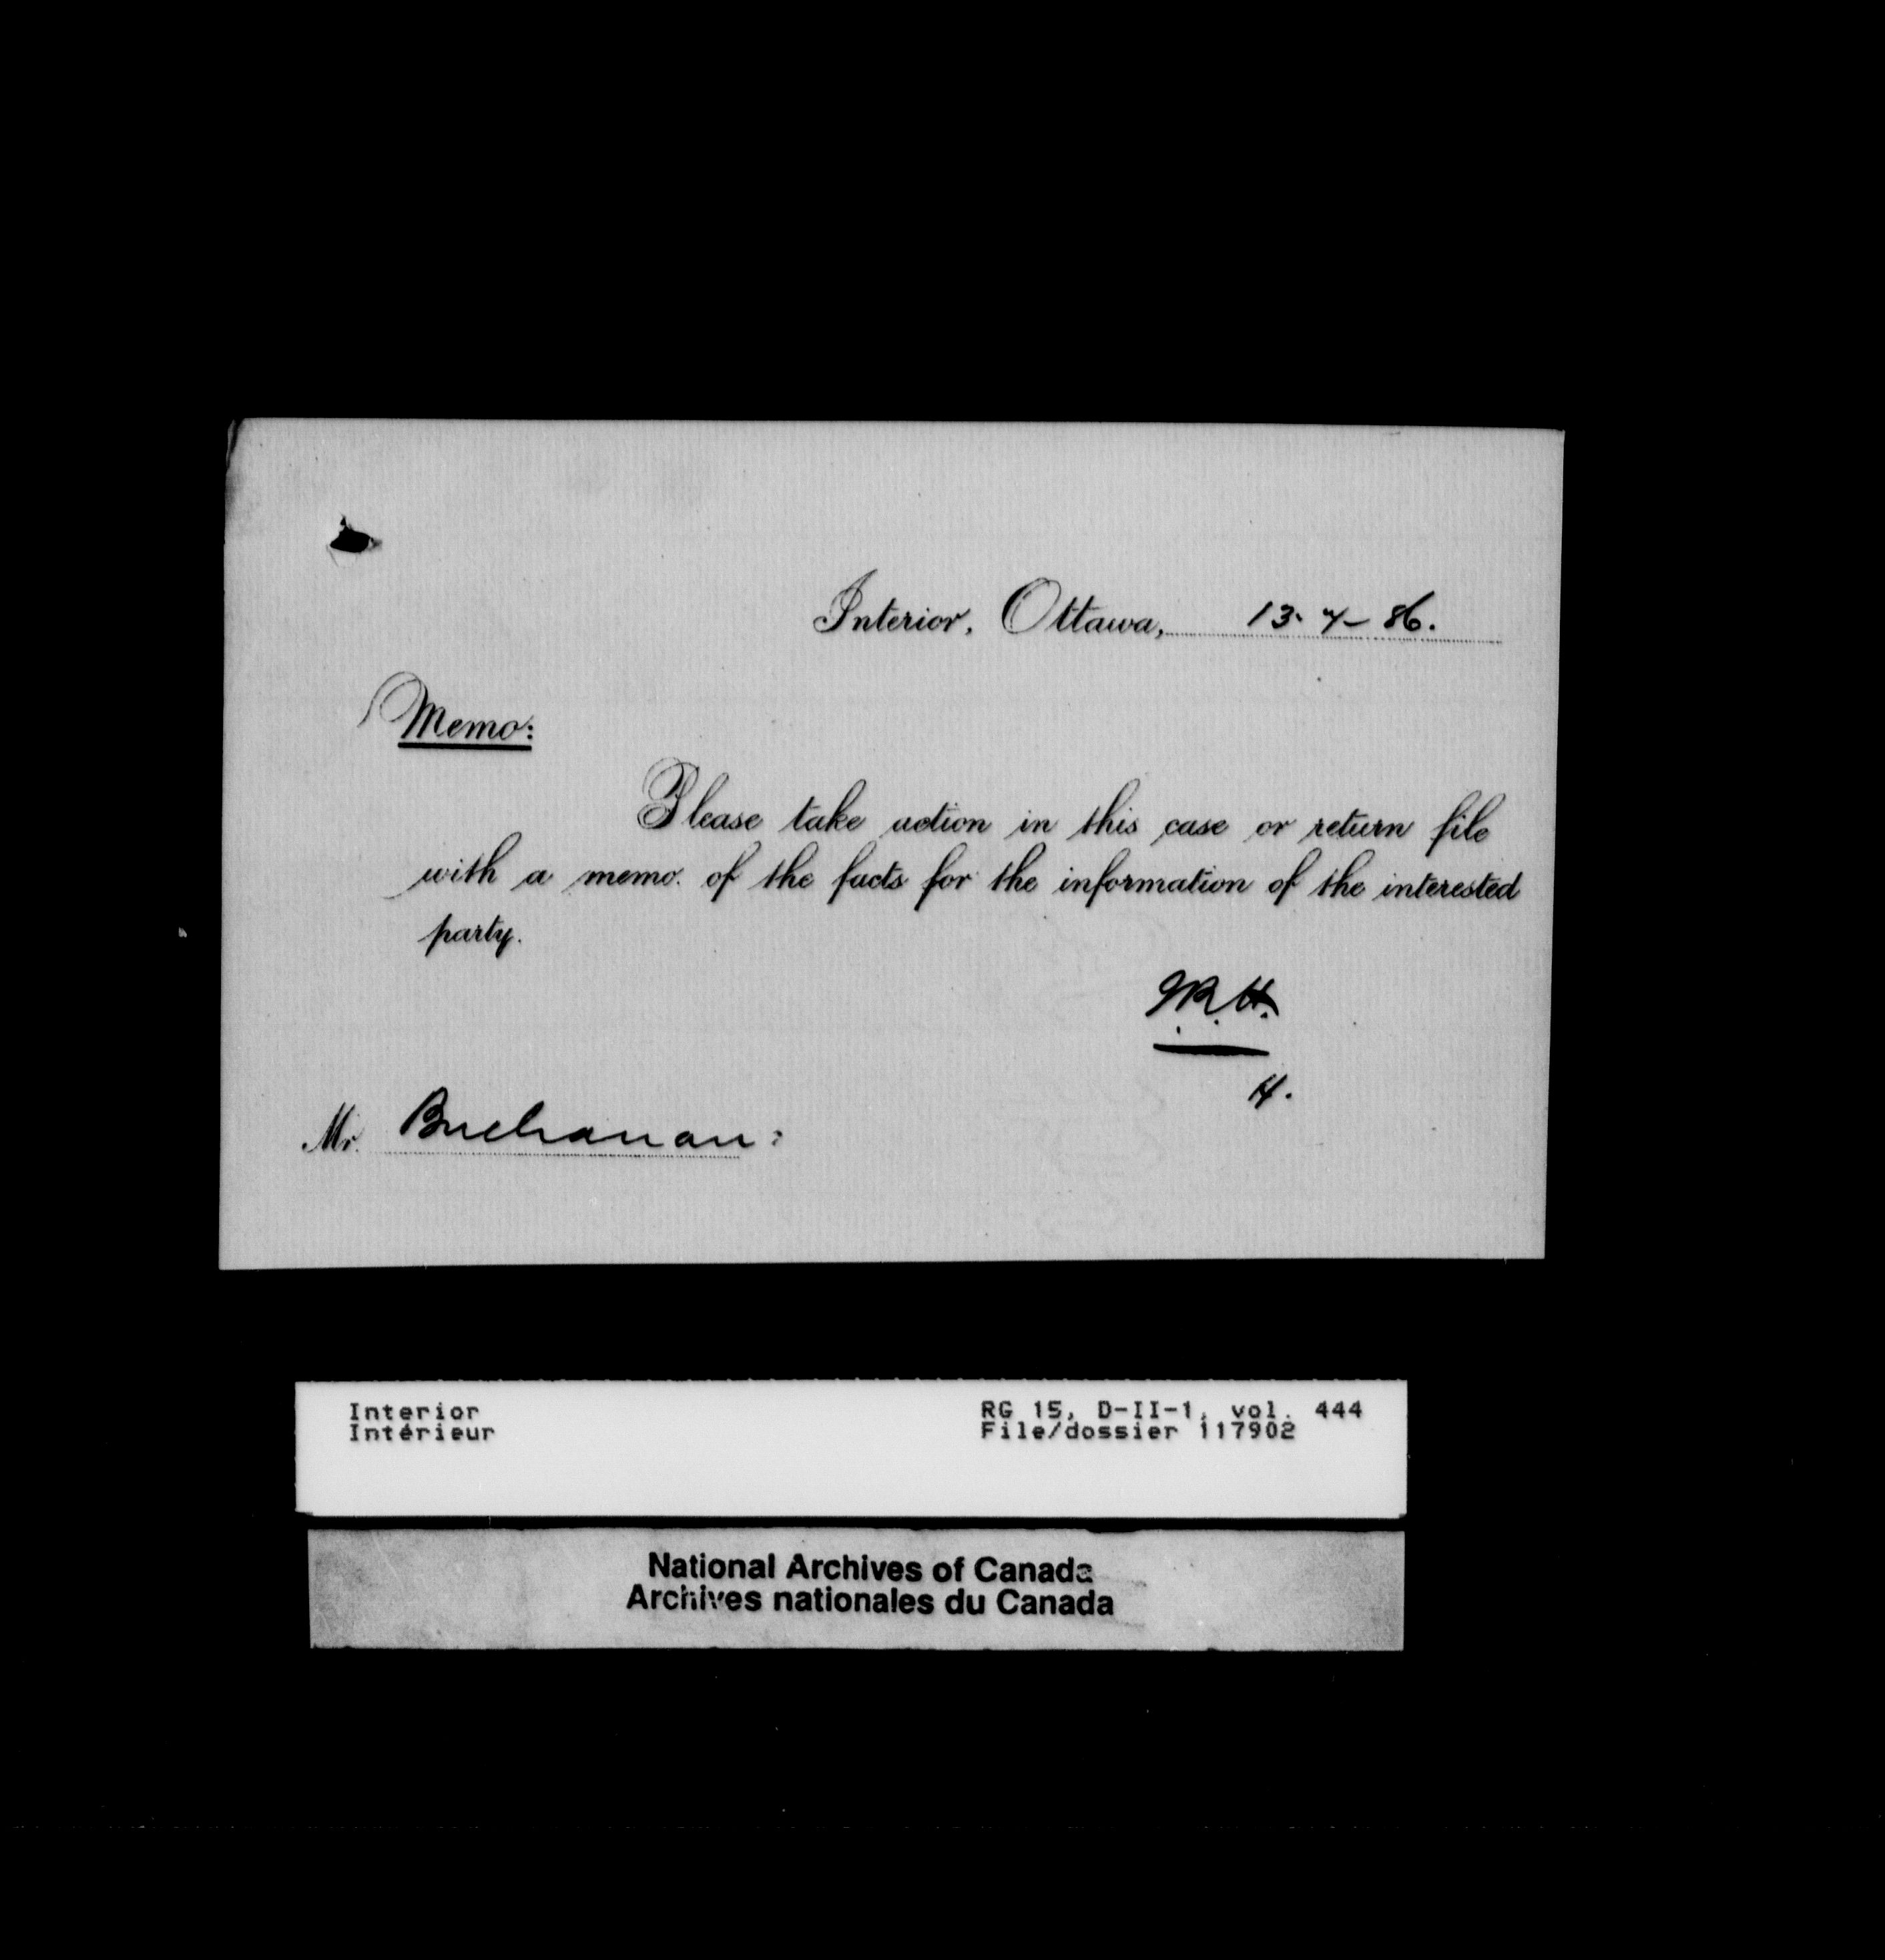 Interior, Ottawa, 13-7-86.
Memo:
Please take action in this case or return file
with a memo. of the facts for the information of the interested
party.
H.
Mr. Buchanan:
Interior
Intérieur
RG 15, D-II-1, vol. 444
File/dossier 117902
National Archives of Canada
Archives nationales du Canada